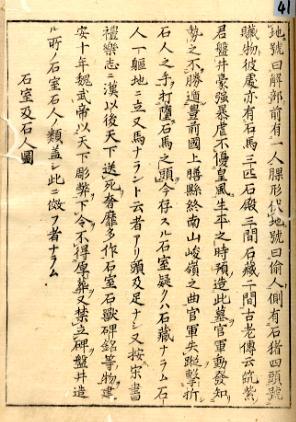 41
地號曰解部前有一人躶形伏地號曰偷人側有石猪四頭號
贓物彼處亦有石馬三匹石殿三間石藏二間古老傳云筑紫
君盤井豪强暴虐不偃皇風生平之時預造此墓官軍動發知
勢之不勝遁豊前國上膳縣終南山峻嶺之曲官軍失蹤撃折
石人之手打墮石馬之頭今存スル石室疑クハ石藏ナラム石
人一軀地ニ立又馬ナラント云者アリ頭及足ナシ又按宋書
禮樂志ニ漢以後天下送死奢靡多作石室石獸碑銘等物建
安十年魏武帝以天下彫弊下令不得厚葬又禁立碑盤井造
ル所ノ石室石人ノ類蓋シ此ニ倣フ者ナラム
石室及石人圖